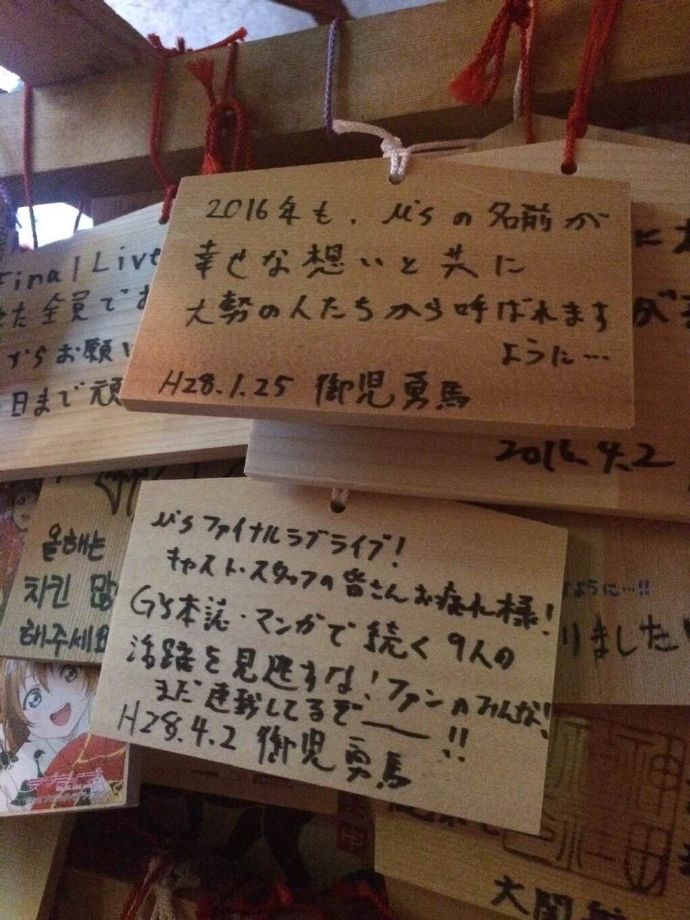 2016年も、μ'sの名前が
幸せな想いと共に
大勢の人たちから呼ばれます
ように…
H28.1.25 御児勇馬
Final Live
た全員でお
からお願い
日まで頑
に
が
2016.4.2
μ'sファイナルラブライブ!
キャスト・スタッフの皆さんお疲れ様!
G's本誌・マンガで続く9人の
活路を見逃すな!ファンのみんな!
まだ連載してるぞ――!!
H28.4.2 御児勇馬
올해는
치킨 많
해주세요
ように…!!
りました!
神田
神社
大関